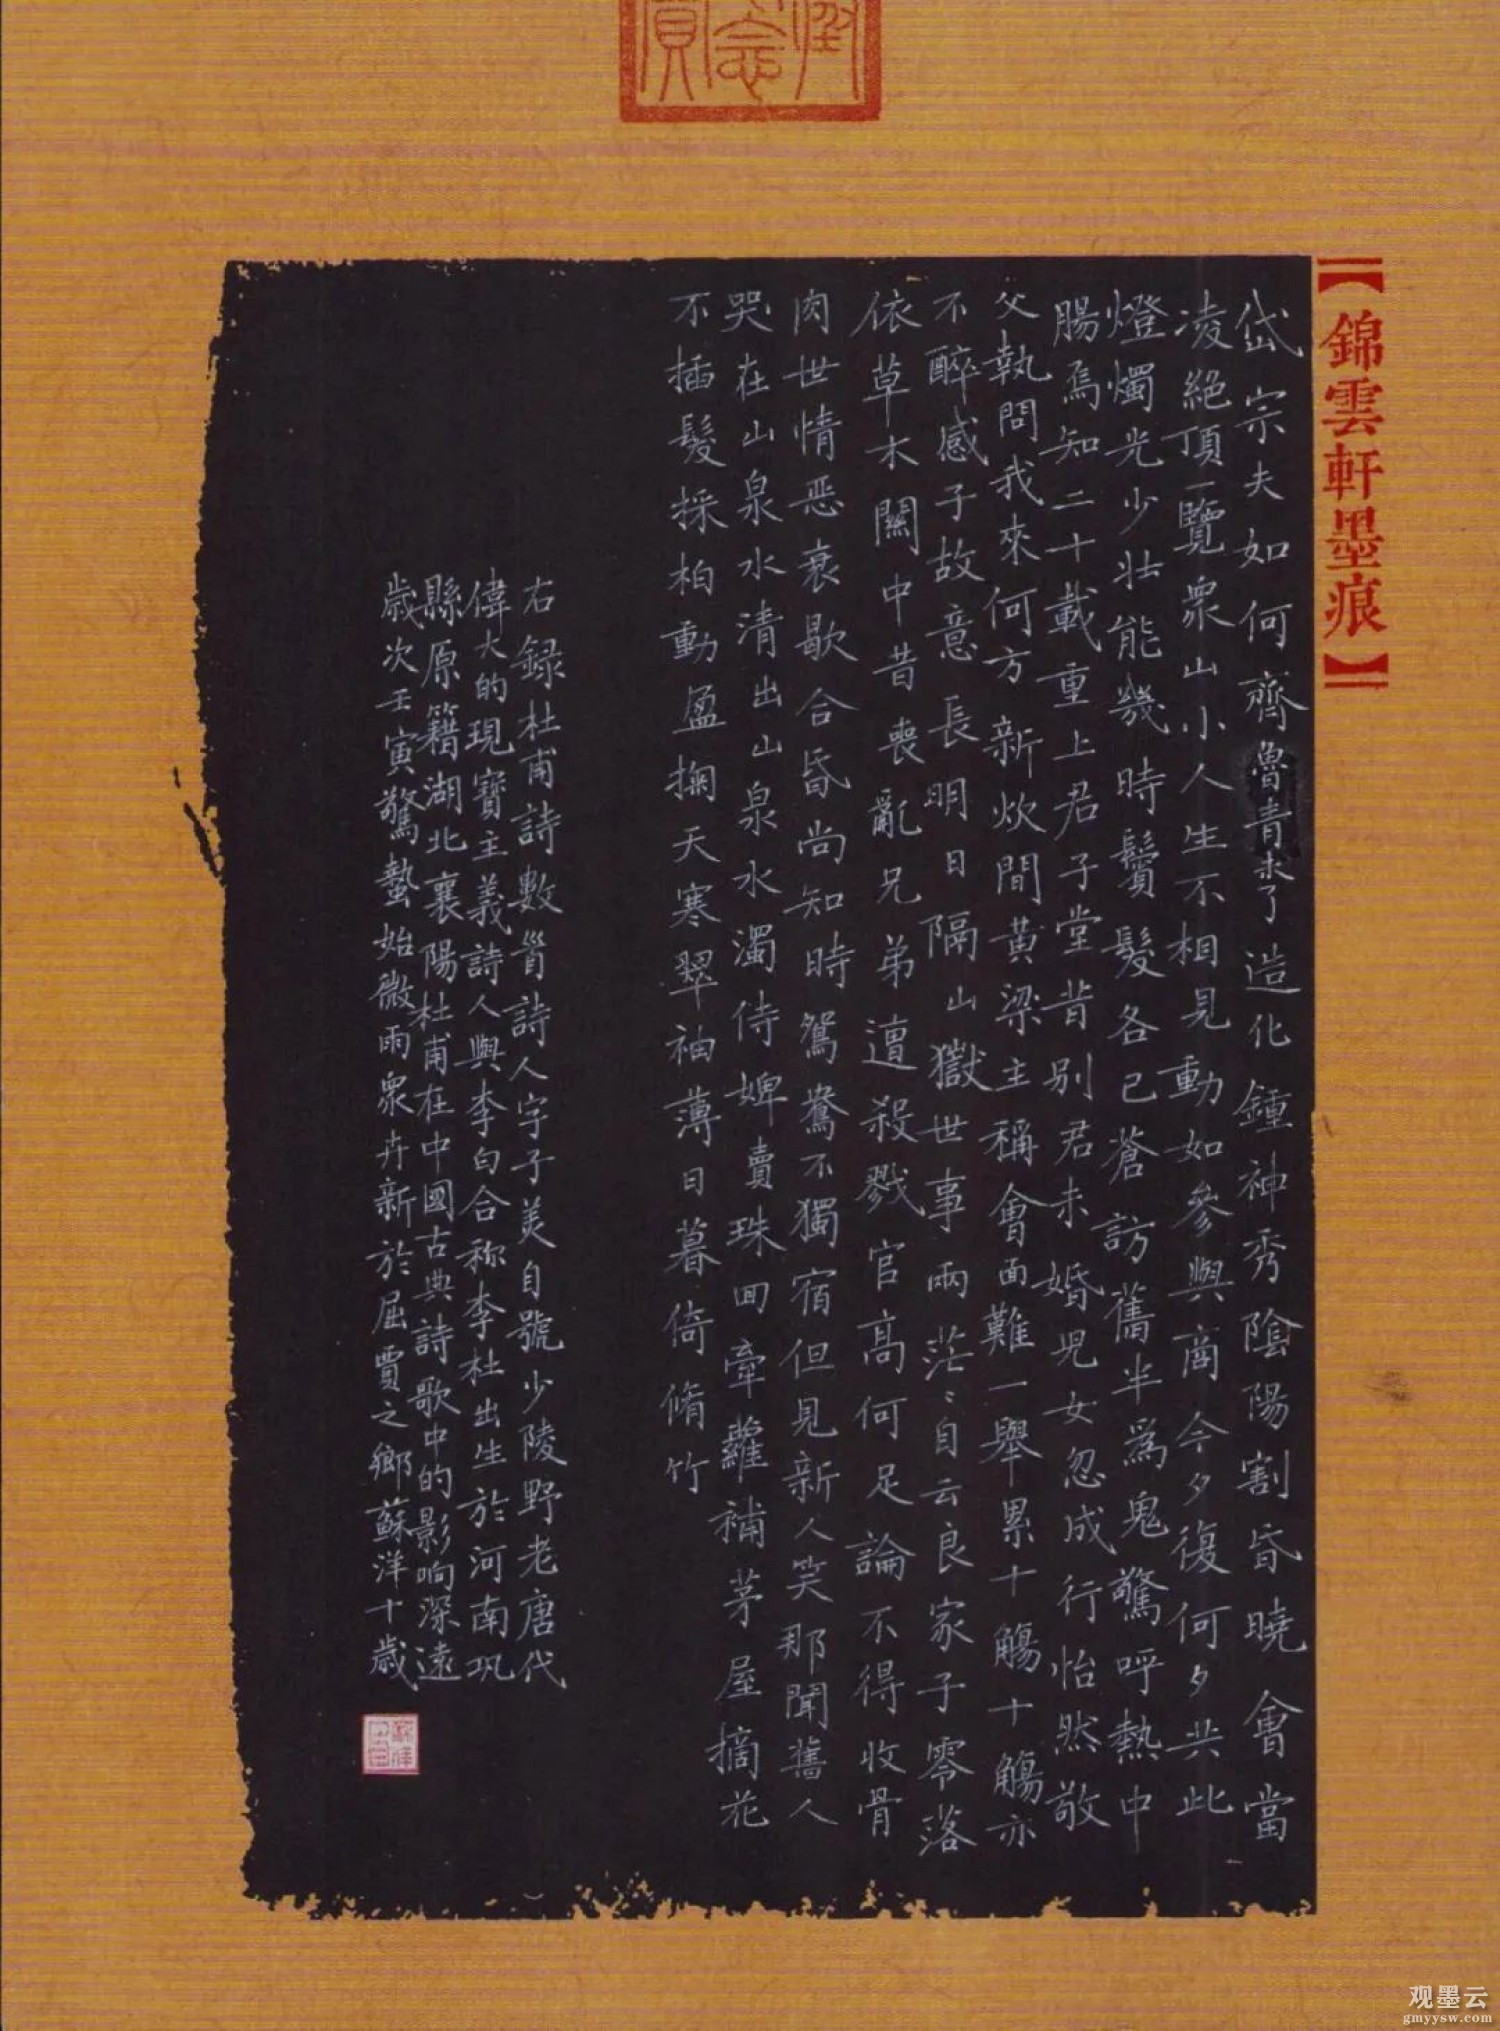 【錦雲軒墨痕】
岱宗夫如何齊魯青未了造化鍾神秀陰陽割昏曉會當
凌絕頂一覽衆山小人生不相見動如參與商今夕復何夕共此
燈燭光少壯能幾時鬢髮各已蒼訪舊半爲鬼驚呼熱中
腸焉知二十載重上君子堂昔別君未婚兒女忽成行怡然敬
父執問我來何方新炊間黃梁主稱會面難一舉累十觴十觴亦
不醉感子故意長明日隔山嶽世事兩茫〻自云良家子零落
依草木關中昔喪亂兄弟遭殺戮官高何足論不得收骨
肉世情恶衰歇合昏尚知時鴛鴦不獨宿但見新人笑那聞舊人
哭在山泉水清出山泉水濁侍婢賣珠回牽蘿補茅屋摘花
不插髮採柏動盈掬天寒翠袖薄日暮倚脩竹
右録杜甫詩數首詩人字子美自號少陵野老唐代
偉大的現實主義詩人與李白合称李杜出生於河南巩
縣原籍湖北襄陽杜甫在中國古典詩歌中的影响深遠
歲次壬寅驚蟄始微雨衆卉新於屈賈之鄉蘇洋十歲
观墨云
gmyysw.com